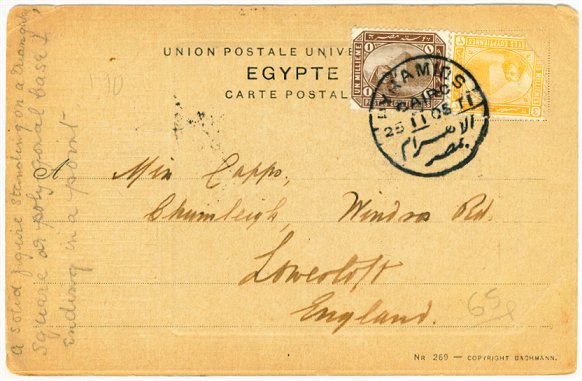 UNION POSTALE UNIVE
EGYPTE
CARTE POSTAL
UN MILLIEME
PYRAMIDS
CAIRO
25 II 05 T
الاهرام
بمصر
10
Miss Capps,
Chumleigh, Windsor Rd.
Lowestoft
England.
65
A solid figure standing on a triangular,
square or polygonal base &
ending in a point
Nr 269 — COPYRIGHT BACHMANN.